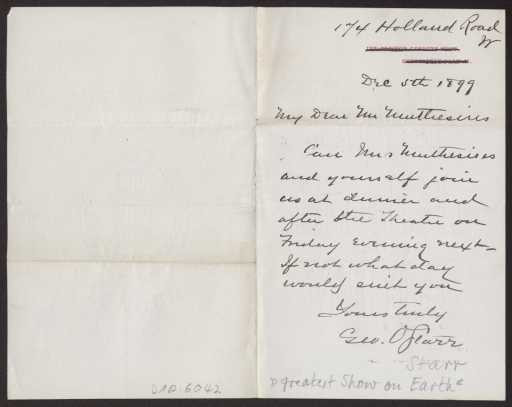 174 Holland Road
W
Dec 5th 1899
My Dear Mr Muthesius
Can Mrs Muthesius
and yourself join
us at dinner and
after the Theatre on
Friday Evening next–
If not what day
would suit you
Yours truly
Geo. O Starr
Starr
"Greatest Show on Earth"
6042